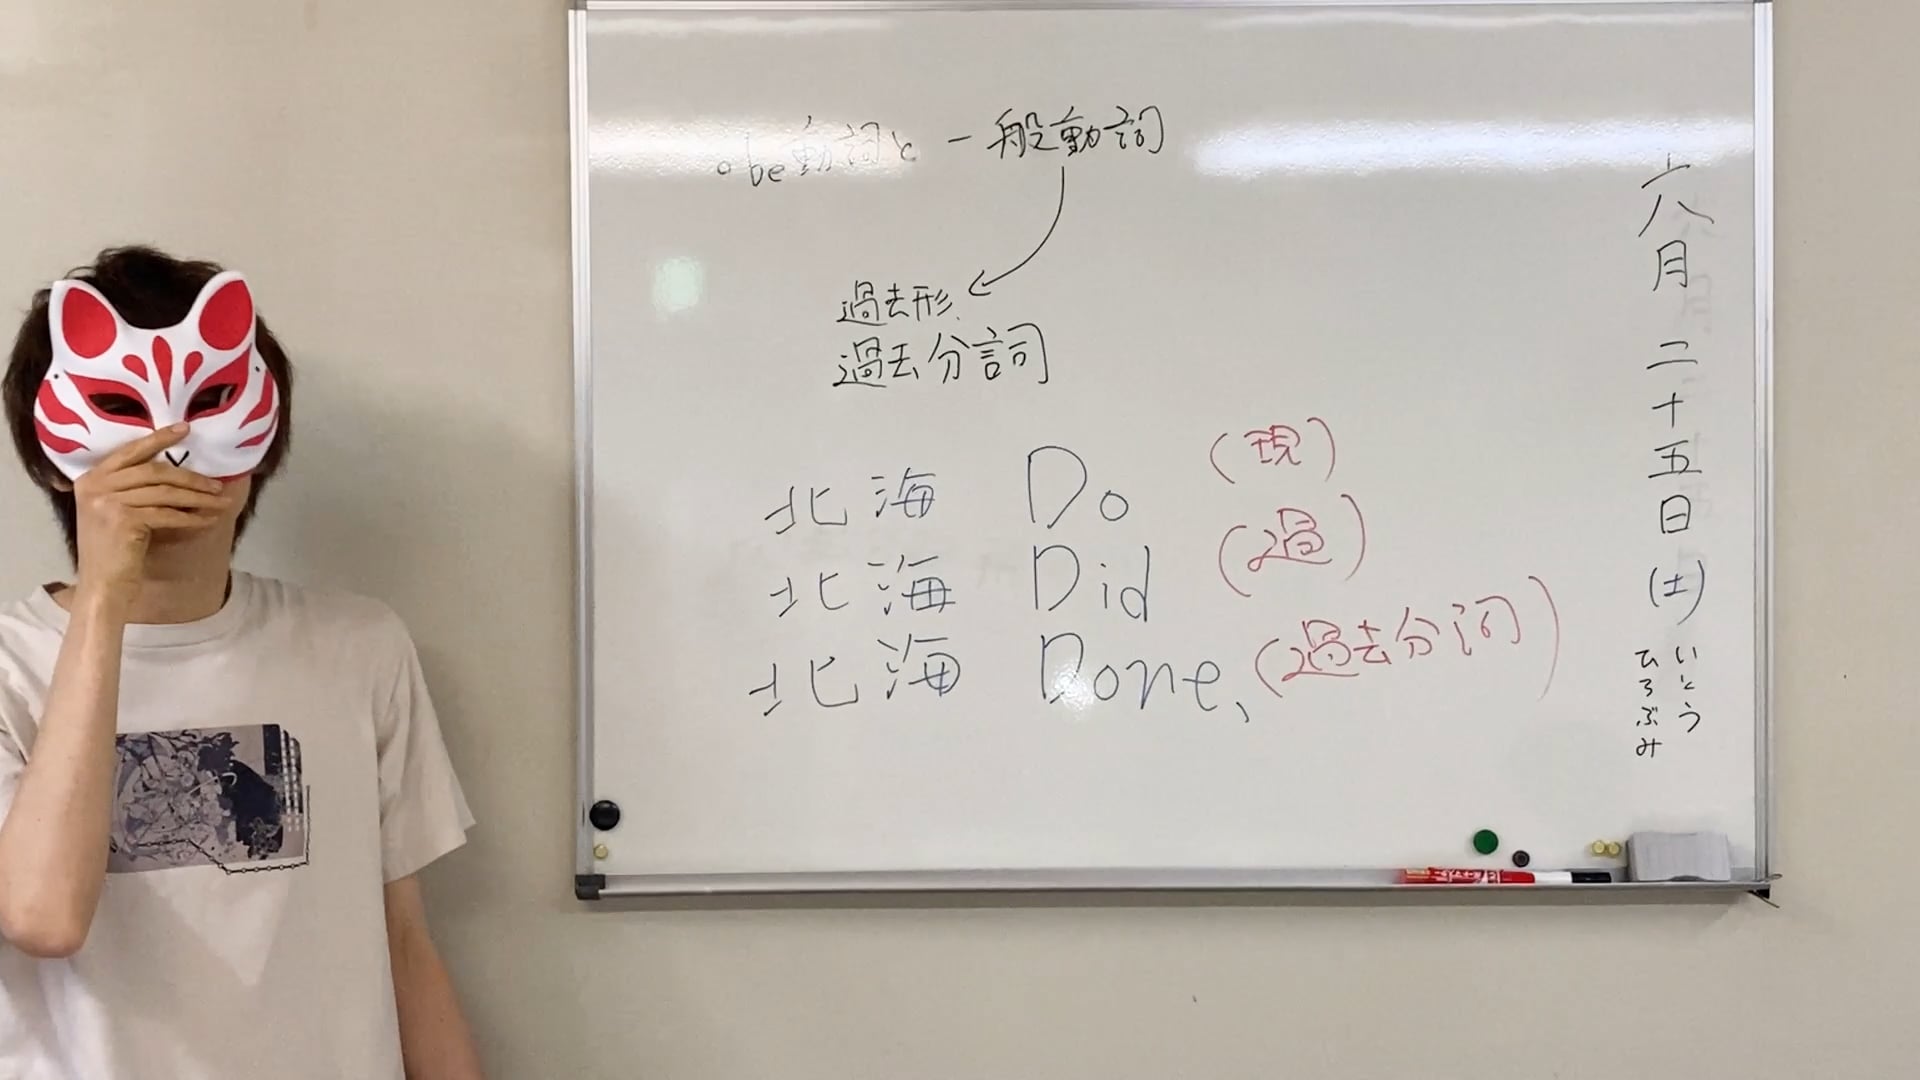 。be動詞と一般動詞
過去形、
過去分詞
北海 Do (現)
北海 Did (過)
北海 Done、(過去分詞)
六月二十五日(土)
いとう
ひろぶみ